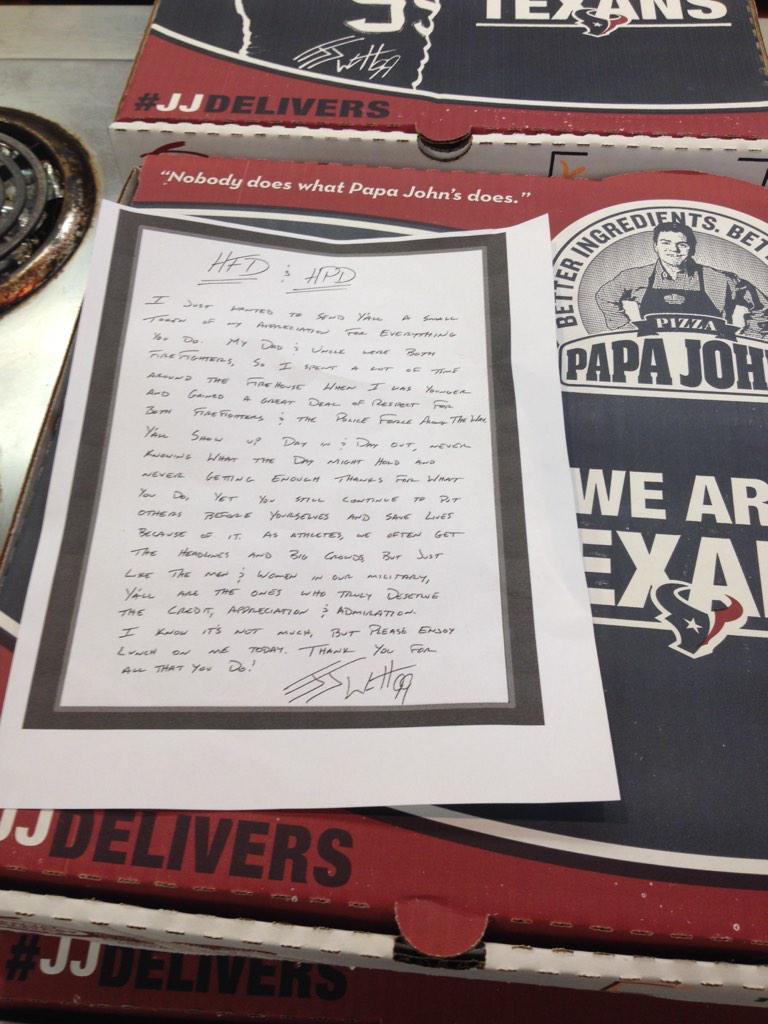 TEXANS
JJ Watt 99
#JJDELIVERS
"Nobody does what Papa John's does."
BETTER INGREDIENTS. BET
PIZZA
PAPA JOH
WE AR
EXA
HFD & HPD
I JUST WANTED TO SEND YALL A SMALL
TOKEN OF MY APPRECIATION FOR EVERYTHING
YOU DO. MY DAD & UNCLE WERE BOTH
FIREFIGHTERS, SO I SPENT A LOT OF TIME
AROUND THE FIREHOUSE WHEN I WAS YOUNGER
AND GAINED A GREAT DEAL OF RESPECT FOR
BOTH FIREFIGHTERS & THE POLICE FORCE ALONG THE WAY.
YALL SHOW UP DAY IN & DAY OUT, NEVER
KNOWING WHAT THE DAY MIGHT HOLD AND
NEVER GETTING ENOUGH THANKS FOR WHAT
YOU DO, YET YOU STILL CONTINUE TO PUT
OTHERS BEFORE YOURSELVES AND SAVE LIVES
BECAUSE OF IT. AS ATHLETES, WE OFTEN GET
THE HEADLINES AND BIG CROWDS, BUT JUST
LIKE THE MEN & WOMEN IN OUR MILITARY,
YA'LL ARE THE ONES WHO TRULY DESERVE
THE CREDIT, APPRECIATION & ADMIRATION.
I KNOW IT'S NOT MUCH, BUT PLEASE ENJOY
LUNCH ON ME TODAY. THANK YOU FOR
ALL THAT YOU DO!
JJ Watt 99
JJDELIVERS
#JJDELIVERS